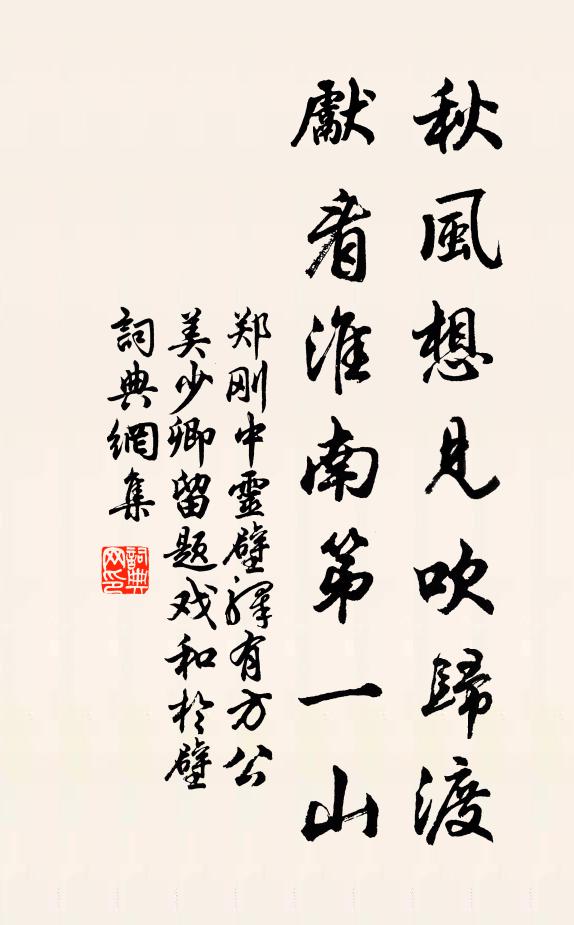 秋風想見吹歸渡
獻看淮南第一山
郑刚中靈壁驛有方公
美少卿留题戏和於壁
詞典網集
詞典
网印